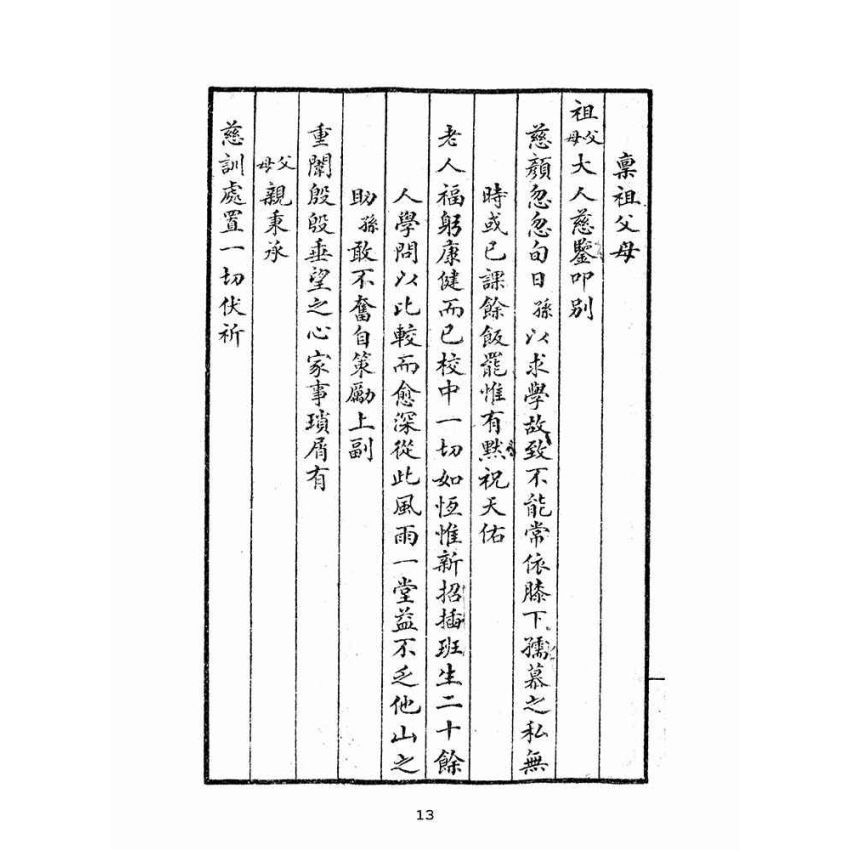 稟祖父母
祖父母大人慈鑒叩別
慈顏忽忽旬日孫以求學故致不能常依膝下孺慕之私無
時或已課餘飯罷惟有默祝天佑
老人福躬康健而已校中一切如恆惟新招插班生二十餘
人學問以比較而愈深從此風雨一堂益不乏他山之
助孫敢不奮自策勵上副
重闈殷殷垂望之心家事瑣屑有
父母親秉承
慈訓處置一切伏祈
13